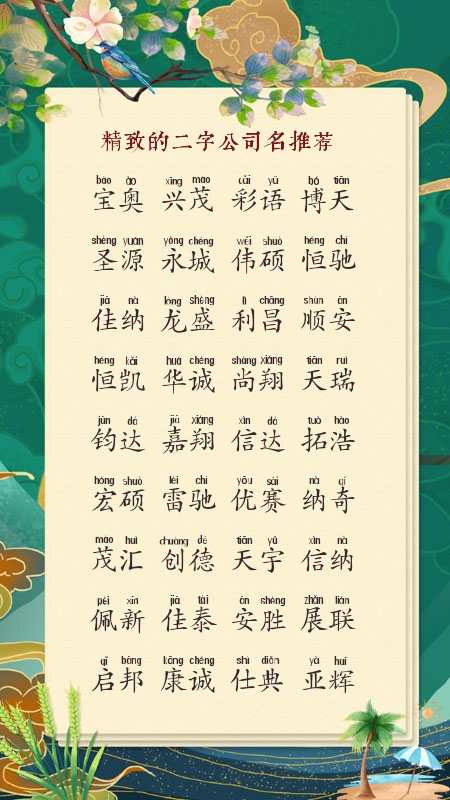 精致的二字公司名推荐
bǎo ào xīng mào cǎi yǔ bó tiān
宝奥 兴茂 彩语 博天
shèng yuán yǒng chéng wěi shuò héng chí
圣源 永城 伟硕 恒驰
jiā nà lóng shèng lì chāng shùn ān
佳纳 龙盛 利昌 顺安
héng kǎi huá chéng shàng xiáng tiān ruì
恒凯 华诚 尚翔 天瑞
jūn dá jiā xiáng xìn dá tuò hào
钧达 嘉翔 信达 拓浩
hóng shuò léi chí yōu sài nà qí
宏硕 雷驰 优赛 纳奇
mào huì chuàng dé tiān yǔ xìn nà
茂汇 创德 天宇 信纳
pèi xīn jiā tài ān shèng zhǎn lián
佩新 佳泰 安胜 展联
qǐ bāng kāng chéng shì diǎn yà huī
启邦 康诚 仕典 亚辉